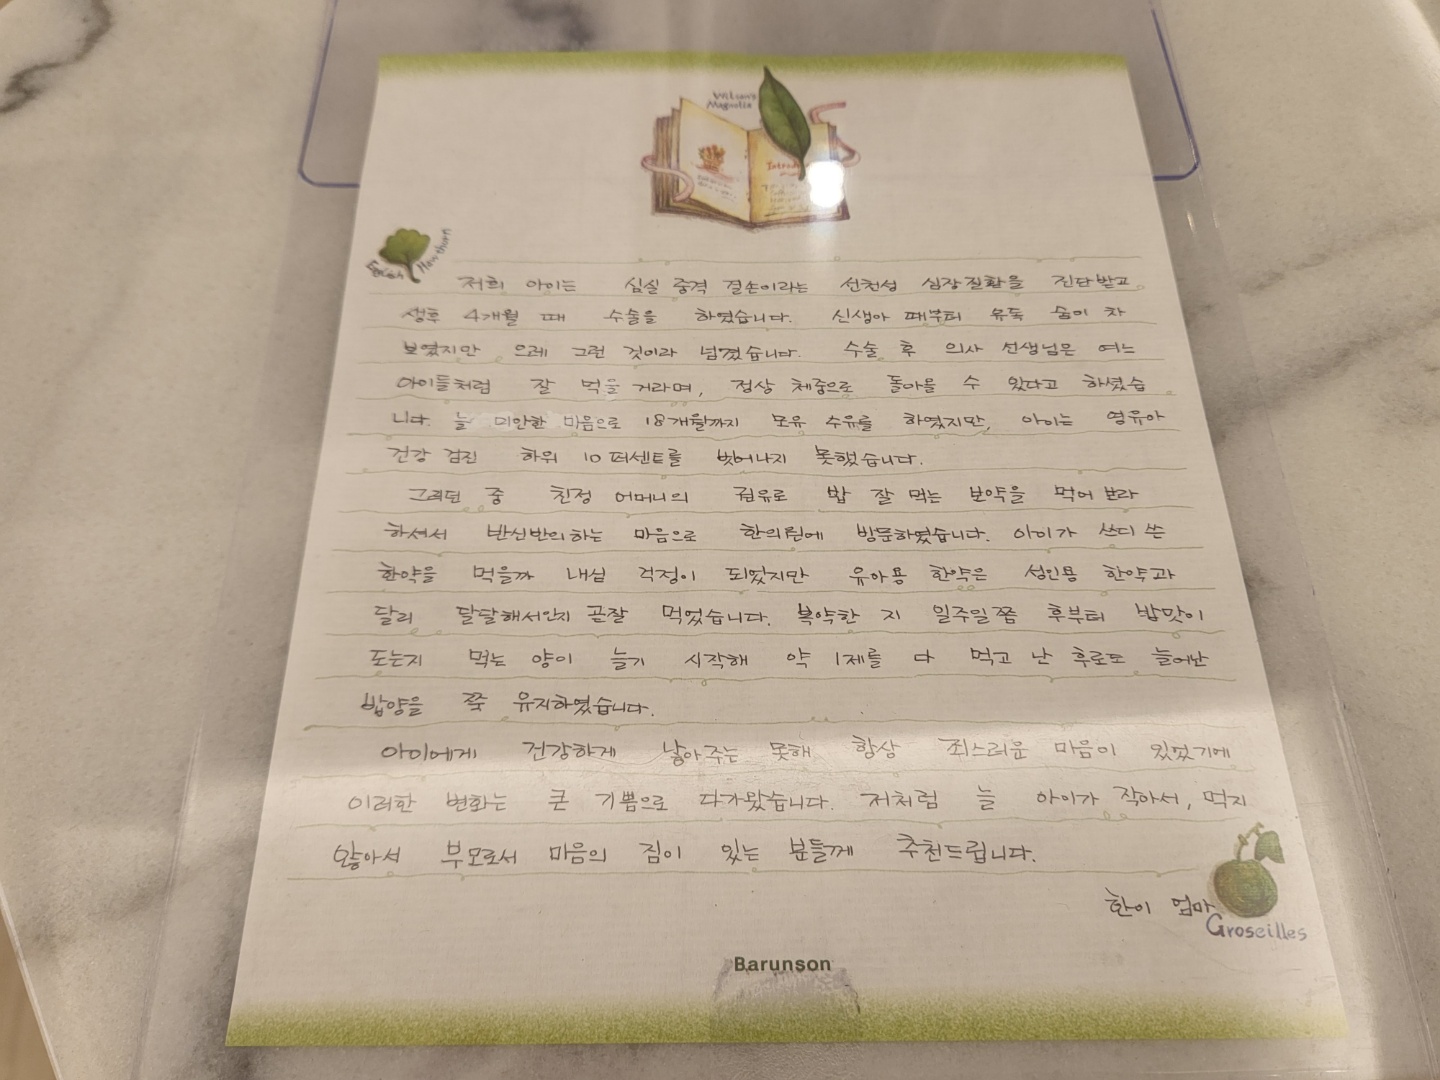 Wilson's
Magnolia
English Hawthorn
저희 아이는 심실 중격 결손이라는 선천성 심장질환을 진단받고
생후 4개월 때 수술을 하였습니다. 신생아 때부터 유독 숨이 차
보였지만 으레 그런 것이라 넘겼습니다. 수술 후 의사 선생님은 여느
아이들처럼 잘 먹을거라며, 정상 체중으로 돌아올 수 있다고 하셨습
니다. 늘 미안한 마음으로 18개월까지 모유 수유를 하였지만, 아이는 영유아
건강 검진 하위 10 퍼센트를 벗어나지 못했습니다.
그러던 중 친정 어머니의 권유로 밥 잘 먹는 보약을 먹여 보라
하셔서 반신반의하는 마음으로 한의원에 방문하였습니다. 아이가 쓰디 쓴
한약을 먹을까 내심 걱정이 되었지만 유아용 한약은 성인용 한약과
달리 달달해서인지 곧잘 먹었습니다. 복약한 지 일주일쯤 후부터 밥맛이
도는지 먹는 양이 늘기 시작해 약 1제를 다 먹고 난 후로도 늘어난
밥양을 쭉 유지하였습니다.
아이에게 건강하게 낳아주는 못해 항상 죄스러운 마음이 있었기에
이러한 변화는 큰 기쁨으로 다가왔습니다. 저처럼 늘 아이가 작아서, 먹지
않아서 부모로서 마음의 짐이 있는 분들께 추천드립니다.
환이 엄마
Groseilles
Barunson